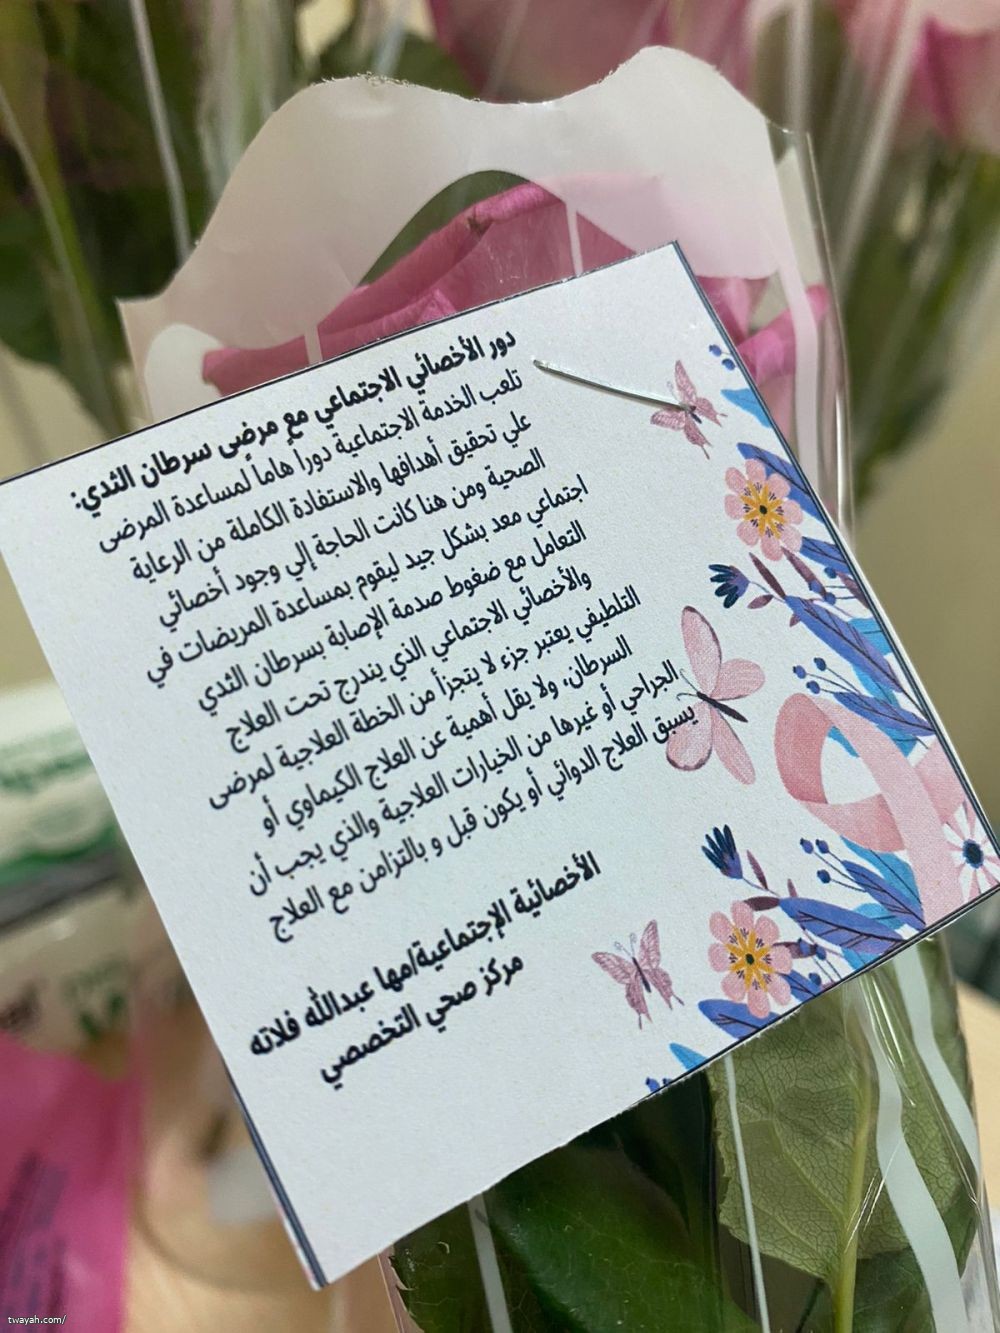 دور الأخصائي الاجتماعي مع مرضى سرطان الثدي:
تلعب الخدمة الاجتماعية دورا هاما لمساعدة المرضى
علي تحقيق أهدافها والاستفادة الكاملة من الرعاية
الصحية ومن هنا كانت الحاجة إلي وجود أخصائي
اجتماعي معد بشكل جيد ليقوم بمساعدة المريضات في
التعامل مع ضغوط صدمة الإصابة بسرطان الثدي
والأخصائي الاجتماعي الذي يندرج تحت العلاج
التلطيفي يعتبر جزء لا يتجزأ من الخطة العلاجية لمرضى
السرطان، ولا يقل أهمية عن العلاج الكيماوي أو
الجراحي أو غيرها من الخيارات العلاجية والذي يجب أن
يسبق العلاج الدوائي أو يكون قبل و بالتزامن مع العلاج
الأخصائية الإجتماعية/مها عبدالله فلاته
مركز صحي التخصصي
twayah.com/